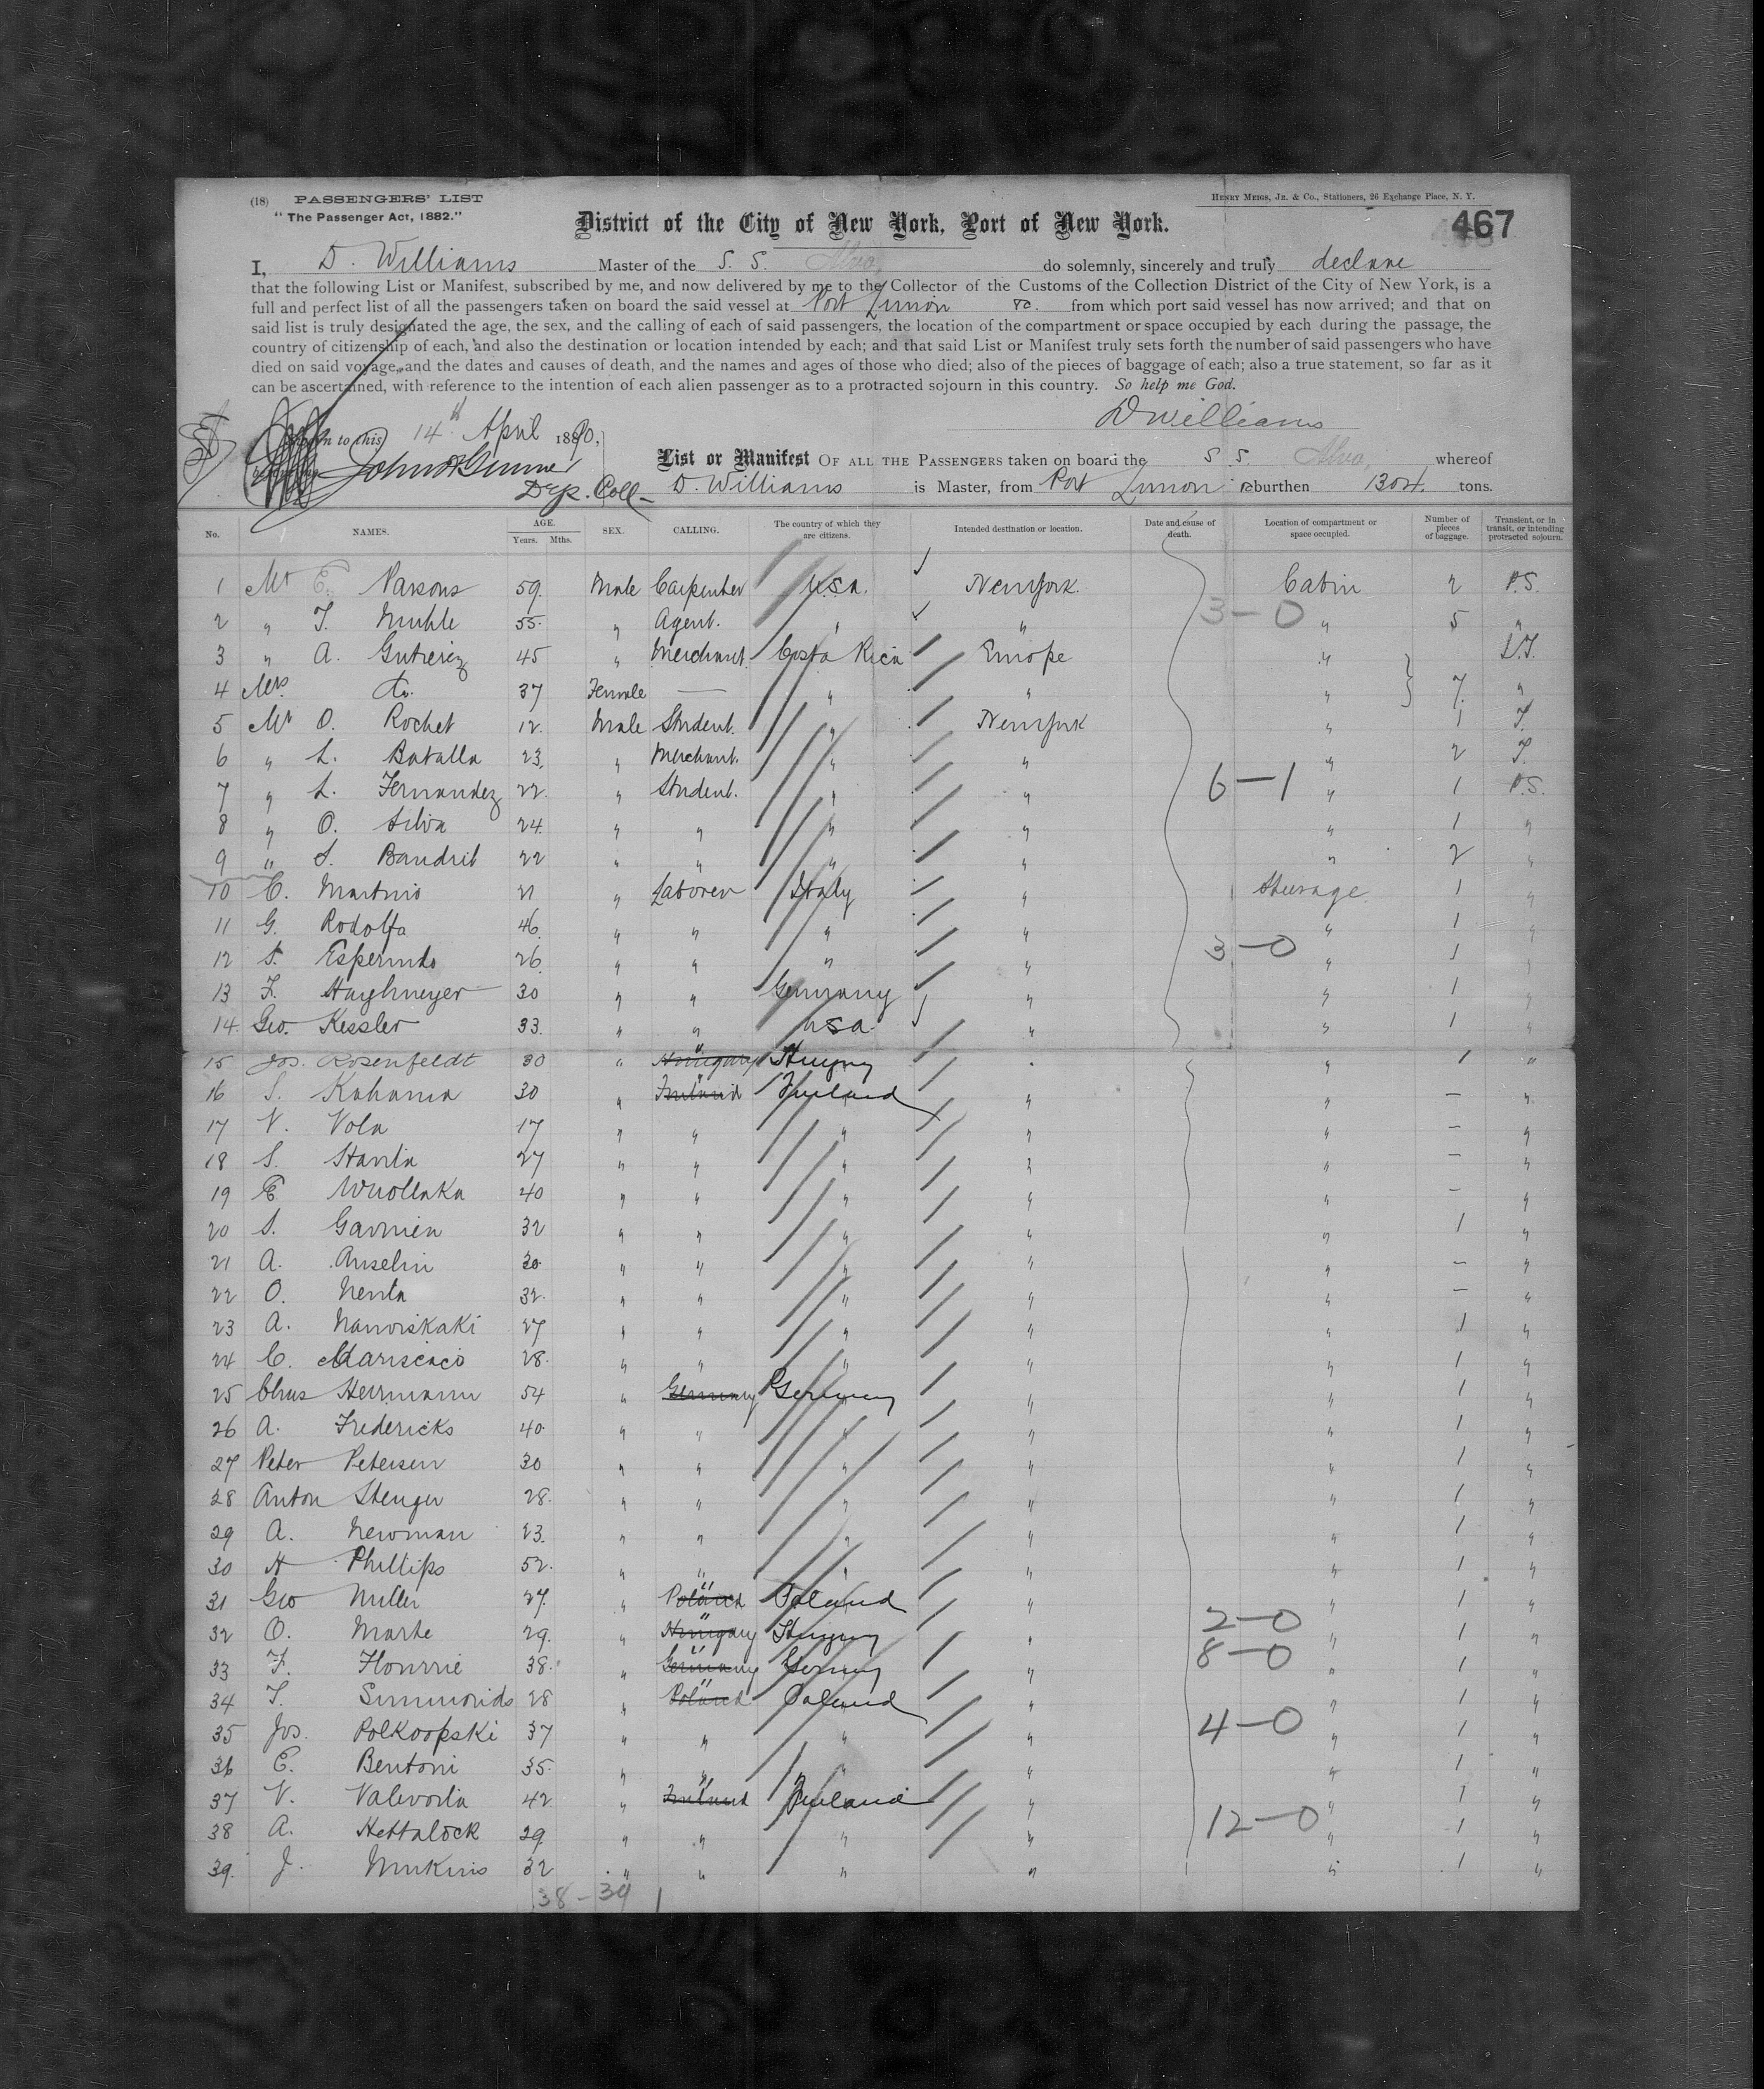 (18) PASSENGERS' LIST
"The Passenger Act, 1882."
HENRY MEIGS, JR. & CO., Stationers, 26 Exchange Place, N. Y.
District of the City of New York, Port of New York.
467
I, D. Williams Master of the S. S. Alvo, do solemnly, sincerely and truly declare
that the following List or Manifest, subscribed by me, and now delivered by me to the Collector of the Customs of the Collection District of the City of New York, is a
full and perfect list of all the passengers taken on board the said vessel at Port Limon &c. from which port said vessel has now arrived; and that on
said list is truly designated the age, the sex, and the calling of each of said passengers, the location of the compartment or space occupied by each during the passage, the
country of citizenship of each, and also the destination or location intended by each; and that said List or Manifest truly sets forth the number of said passengers who have
died on said voyage, and the dates and causes of death, and the names and ages of those who died; also of the pieces of baggage of each; also a true statement, so far as it
can be ascertained, with reference to the intention of each alien passenger as to a protracted sojourn in this country. So help me God.
DWilliams
to this 14th April 1890,
Dep. Coll
List or Manifest OF ALL THE PASSENGERS taken on board the S S. Alvo, whereof
D. Williams is Master, from Port Limon burthen 1304. tons.
No. NAMES. AGE. Years. Mths. SEX. CALLING. The country of which they are citizens. Intended destination or location. Date and cause of death. Location of compartment or space occupied. Number of pieces of baggage. Transient, or in transit, or intending protracted sojourn.
1 Mr E. Parsons 59. Male Carpenter U.S.A. New York. Cabin 2 P.S.
2 " T. Muhle 55. " Agent. " " 3-0 " 5 "
3 " A. Gutierez 45 " Merchant. Costa Rica Europe "
4 Mrs. Do. 37 Female — " " " 7. "
5 Mr O. Rochet 12. Male Student. " New York " 1 T.
6 " L. Batalla 23. " Merchant. " " " 2 T.
7 " L. Fernandez 22. " Student. " " 6-1 " 1 P.S.
8 " O. Silva 24. " " " " " 1 "
9 " S. Bandrit 22 " " " " " 2 "
10 C. Martinis 21 " Laborer Italy " Steerage. 1 "
11 G. Rodolfa 46. " " " " " 1 "
12 S. Esperindo 26. " " " " 3-0 " 1 "
13 F. Haghmeyer 30 " " Germany " " 1 "
14. Geo. Kessler 33. " " USA. " " 1 "
15 Jos. Rosenfeldt 30 " Hungary Hungry " " 1 "
16 S. Kahama 30 " Finland Finland " " — "
17 V. Vola 17 " " " " " — "
18 S. Stanla 27 " " " " " — "
19 E. Wuollaka 40 " " " " " — "
20 S. Gavnien 32 " " " " " 1 "
21 A. Anselin 30. " " " " " — "
22 O. Nenla 32. " " " " " — "
23 A. Nanviskaki 27 " " " " " 1 "
24 C. Mariscaco 28. " " " " " 1 "
25 Chas Herrmann 54 " Germany Germany " " 1 "
26 A. Fredericks 40. " " " " " 1 "
27 Peter Petersen 30 " " " " " 1 "
28 Anton Stenger 28. " " " " " 1 "
29 A. Newman 23. " " " " " 1 "
30 H Phillips 52. " " " " " 1 "
31 Geo Miller 27. " Poland Poland " " 1 "
32 O. Marke 29. " Hungary Hungry " 2-0 " 1 "
33 F. Flourrie 38. " Germany Germny " 8-0 " 1 "
34 T. Simmonids 28 " Poland Poland " " 1 "
35 Jos. Polkoopski 37 " " " " 4-0 " 1 "
36 E. Bentoni 35. " " " " " 1 "
37 V. Valivoila 42 " Finland Finland " " 1 "
38 A. Hettalock 29 " " " " 12-0 " 1 "
39. J. Mukinis 32 " " " " " 1 "
38-39 1